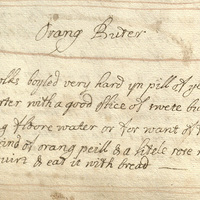 Orang Buter
olks boyled very hard yn pill of ye
rter with a good slice of swete bu
g flowre water or for want of t
rind of orang peill & a litele rose
uirt & eat it with bread